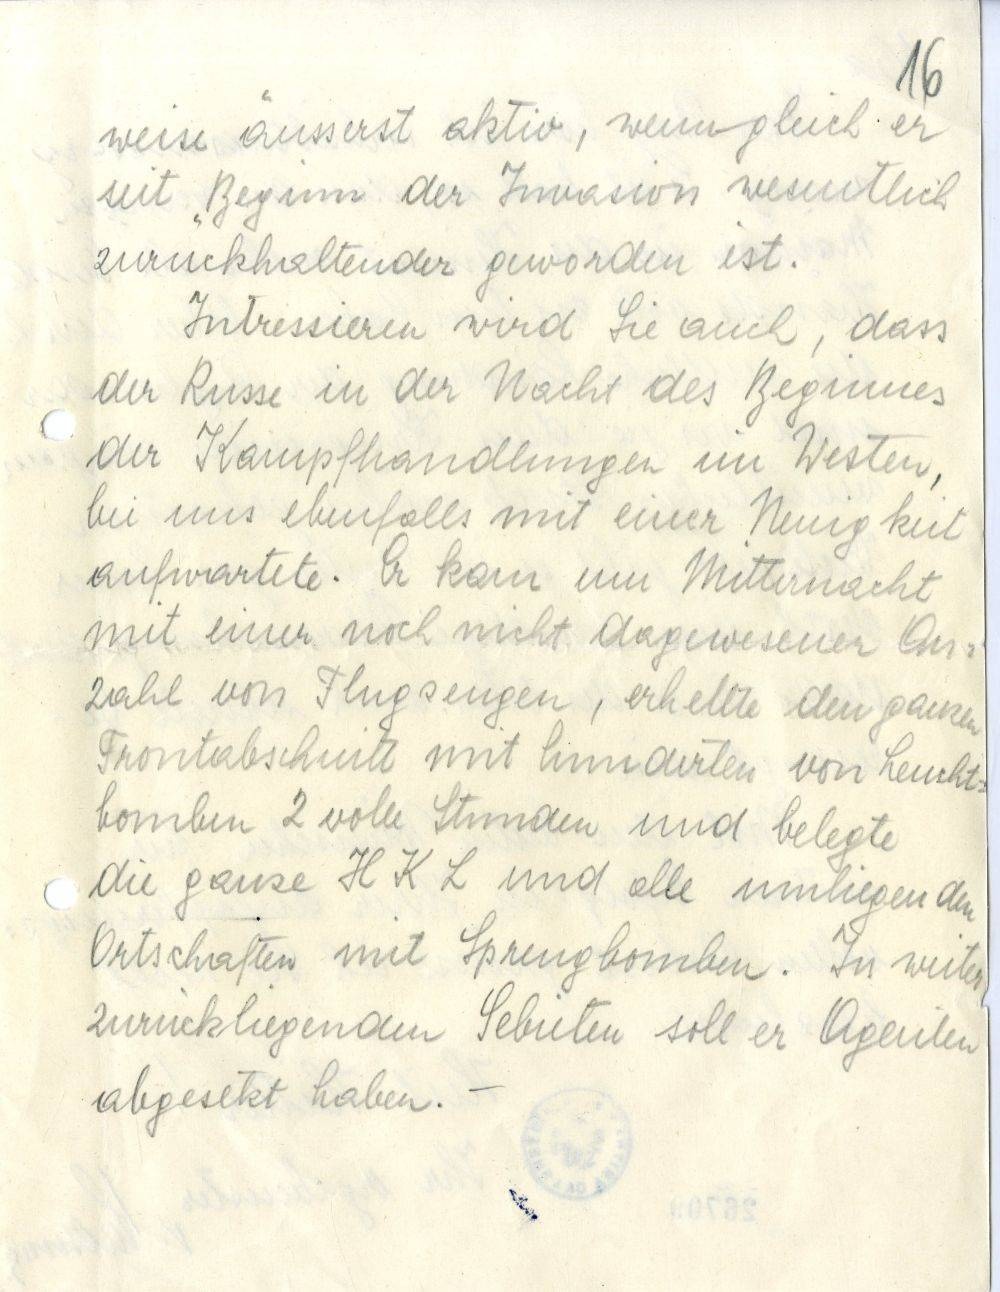 16
weise äusserst aktiv, wenngleich er
seit Beginn der Invasion wesentlich
zurückhaltender geworden ist.
Intressieren wird Sie auch, dass
der Russe in der Nacht des Beginnes
der Kampfhandlungen im Westen,
bei uns ebenfalls mit einer Neuigkeit
aufwartete. Er kam um Mitternacht
mit einer noch nicht dagewesener An-
zahl von Flugzeugen, erhellte den ganzen
Frontabschnitt mit hunderten von Leucht-
bomben 2 volle Stunden und belegte
die ganze H K L und alle umliegenden
Ortschaften mit Sprengbomben. In weiter
zurückliegenden Gebieten soll er Agenten
abgesetzt haben. —